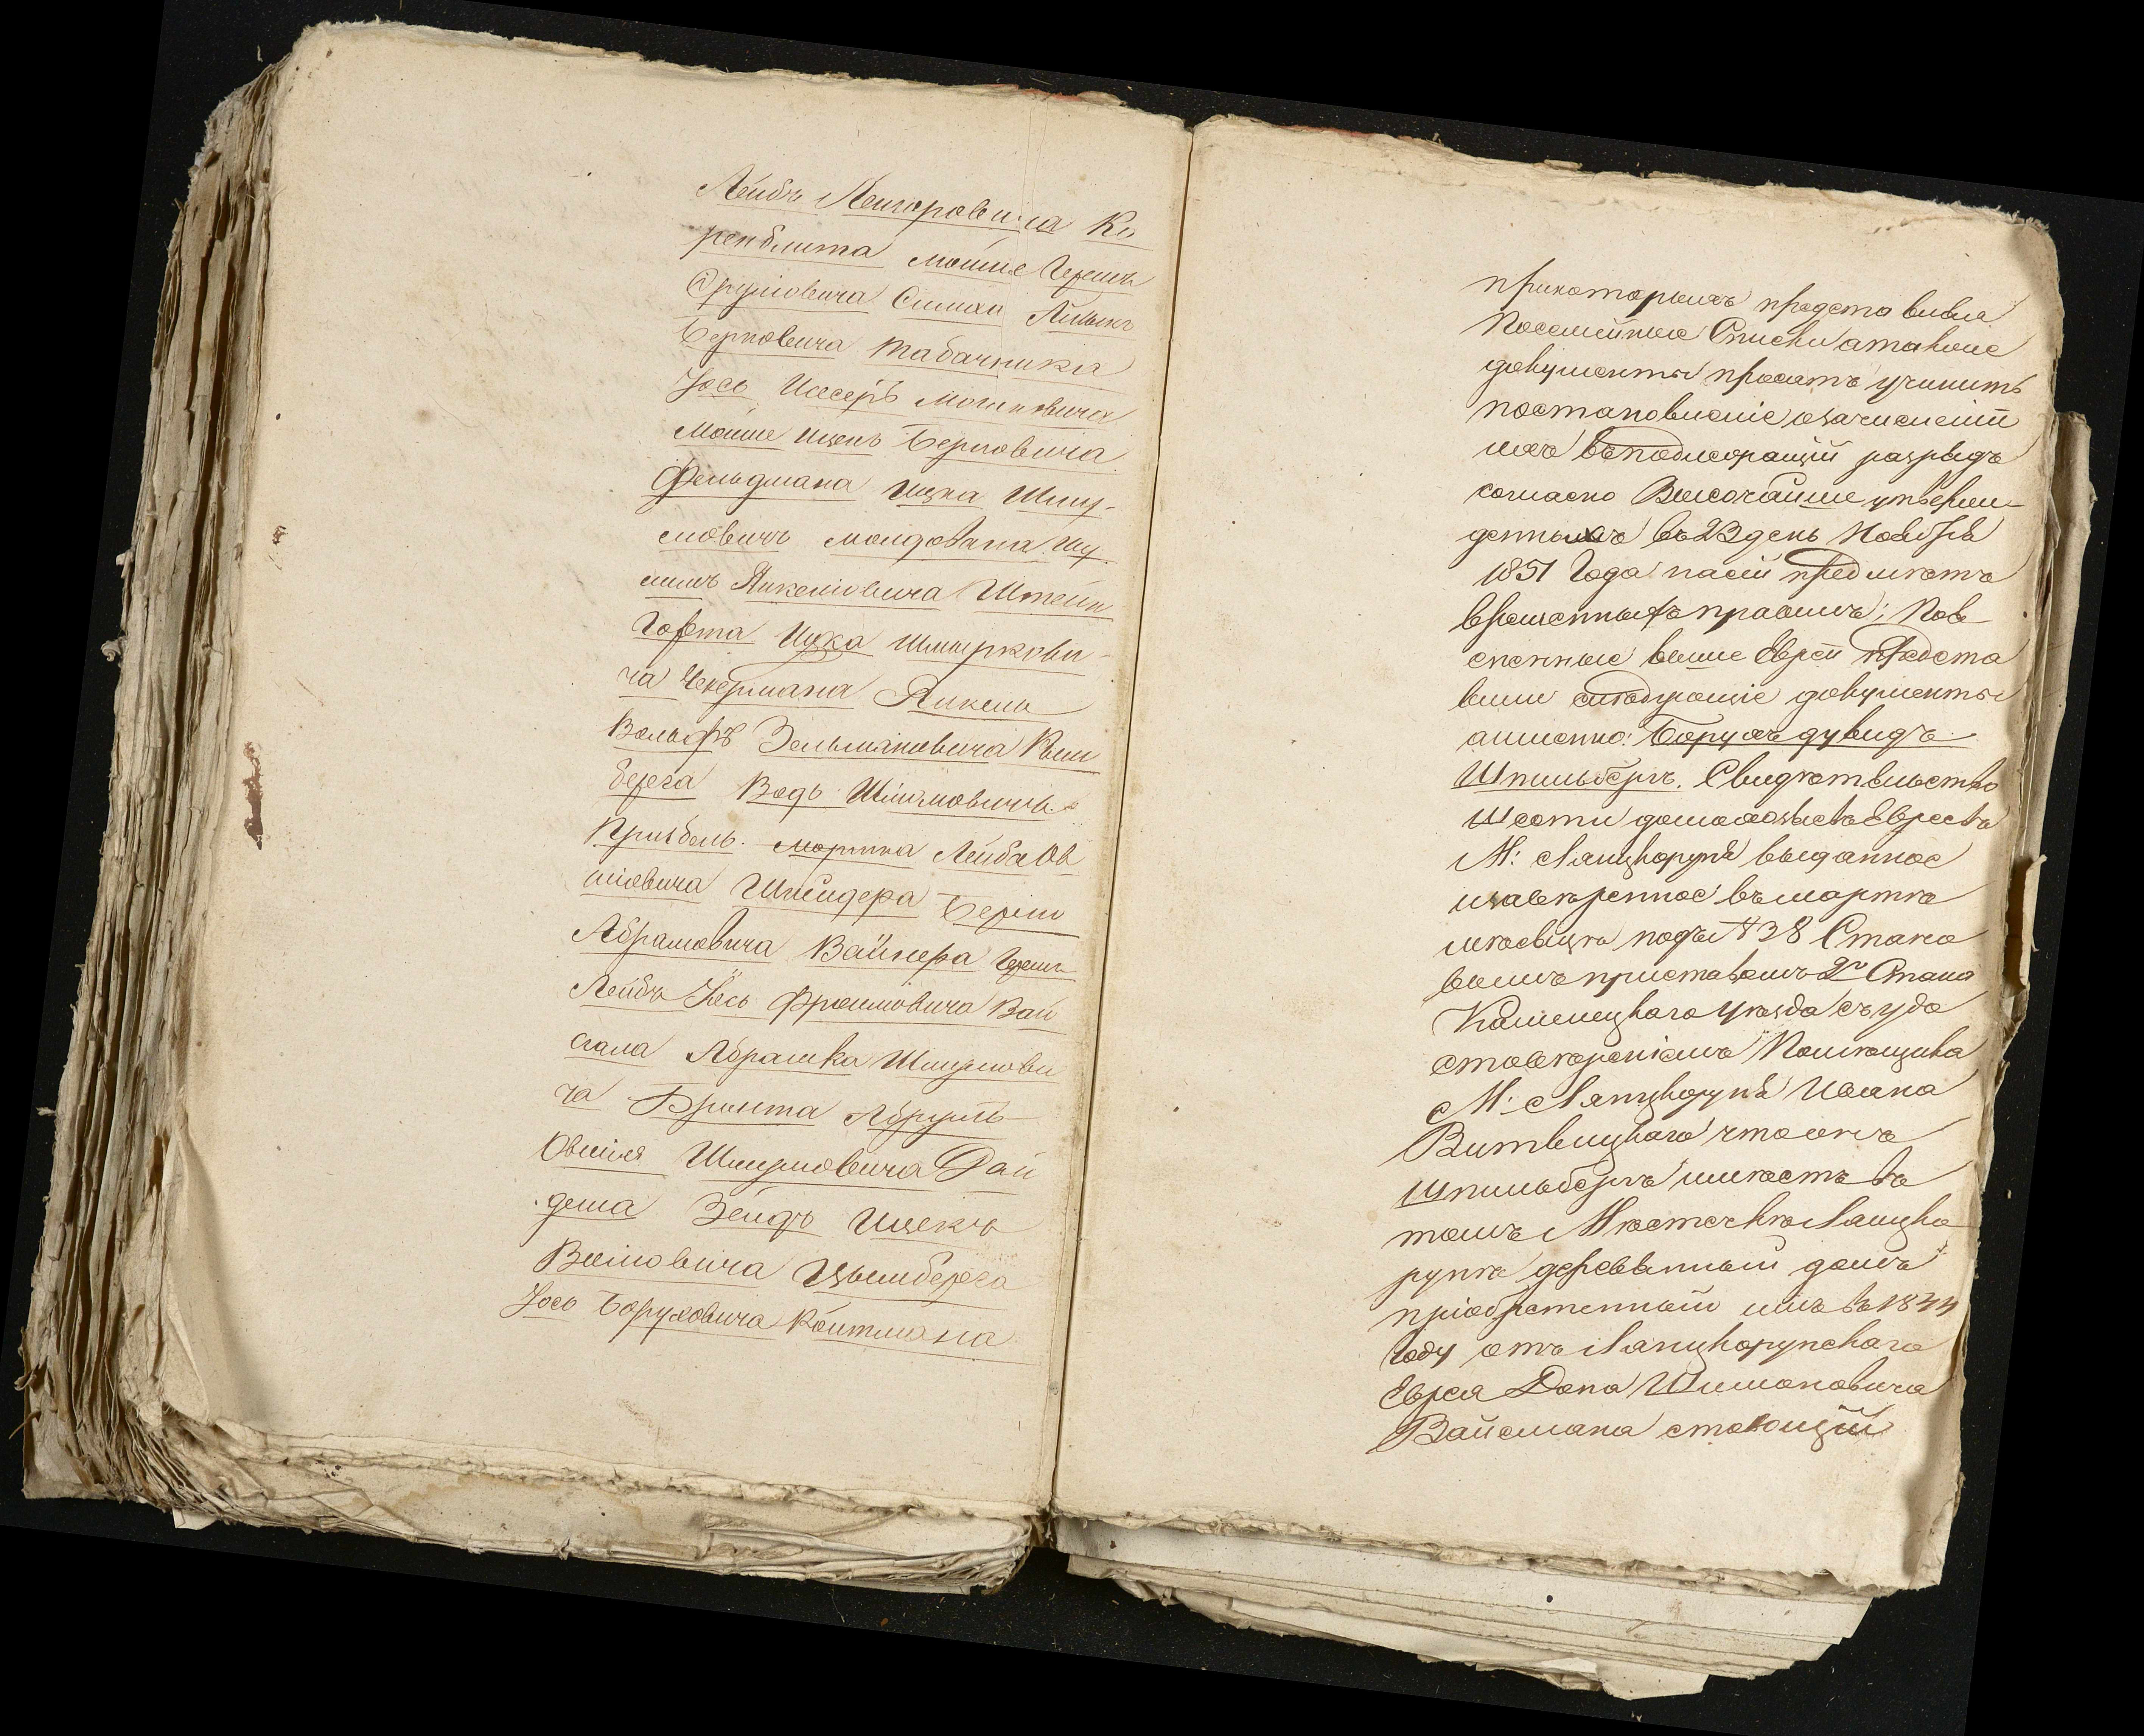 Лейбъ Лейзоровича Ко
ренблита Мошне Герша
Сруліовича Симха
Берковича Табачника
Іось Иссеръ Мошковича
Мошне Ицекъ Берковича
Фельдмана Ицка Шму-
ловичъ Молдована Шу
лимъ Янкеліовича Штейн
Іцка Шмеркови-
ча Чекермана Янкель
Вольфъ Зельмановича
берга Шліомовичъ
Мортка Лейба Ов
шіовича Шнейдера Беріш
Абрамовича Вайнера Гершъ
Лейбъ Іось Фроимовича Вай
смана Абрашка Шмулови
ча Абрумъ
Овшія Шмуловича Рай
деша Зейдъ Ицекъ
Цымберга
Іось Боруховича Койтмана
прикоторыхъ представивъ
Посемейные Списки атакже
документы просятъ учинить
постановленіе озачисленіи
ихъ въподлежащій разрядъ
согласно Высочайше утверж-
денныхъ въ 23 день Ноября
1851 Года насей предметъ
временныхъ правилъ; Пов-
сненные выше Евреи предста
вили слѣдующіе документы
аименно: Борухъ Дувидъ
Шпильбергъ. Свидѣтельство
Шести домохозяевъ Евреевъ
М: Лянцкорунѣ выданное
изавѣренное въ мартѣ
мѣсяцѣ подъ № 38 Стано
вымъ приставомъ 2го Стана
Каменецкаго уѣзда съ удо
стовѣреніемъ Помѣщика
М: Лянцкорунѣ Ивана
Витвицкаго что онъ
Шпильбергъ имѣетъ въ
томъ Мѣстечкѣ Лянцко
рунѣ деревянный домъ
пріобретенный имъ въ 1844
Году отъ Лянцкорунскаго
Еврея Дона Шимоновича
Вайсмана стоющій